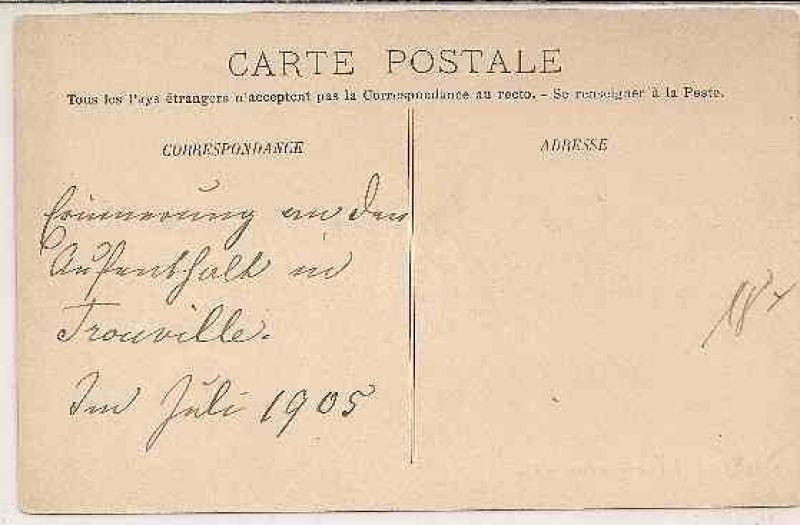 CARTE POSTALE
Tous les Pays étrangers n'acceptent pas la Correspondance au recto. - Se renseigner à la Poste.
CORRESPONDANCE
ADRESSE
Erinnerung an den
Aufenthalt in
Trouville.
Im Juli 1905